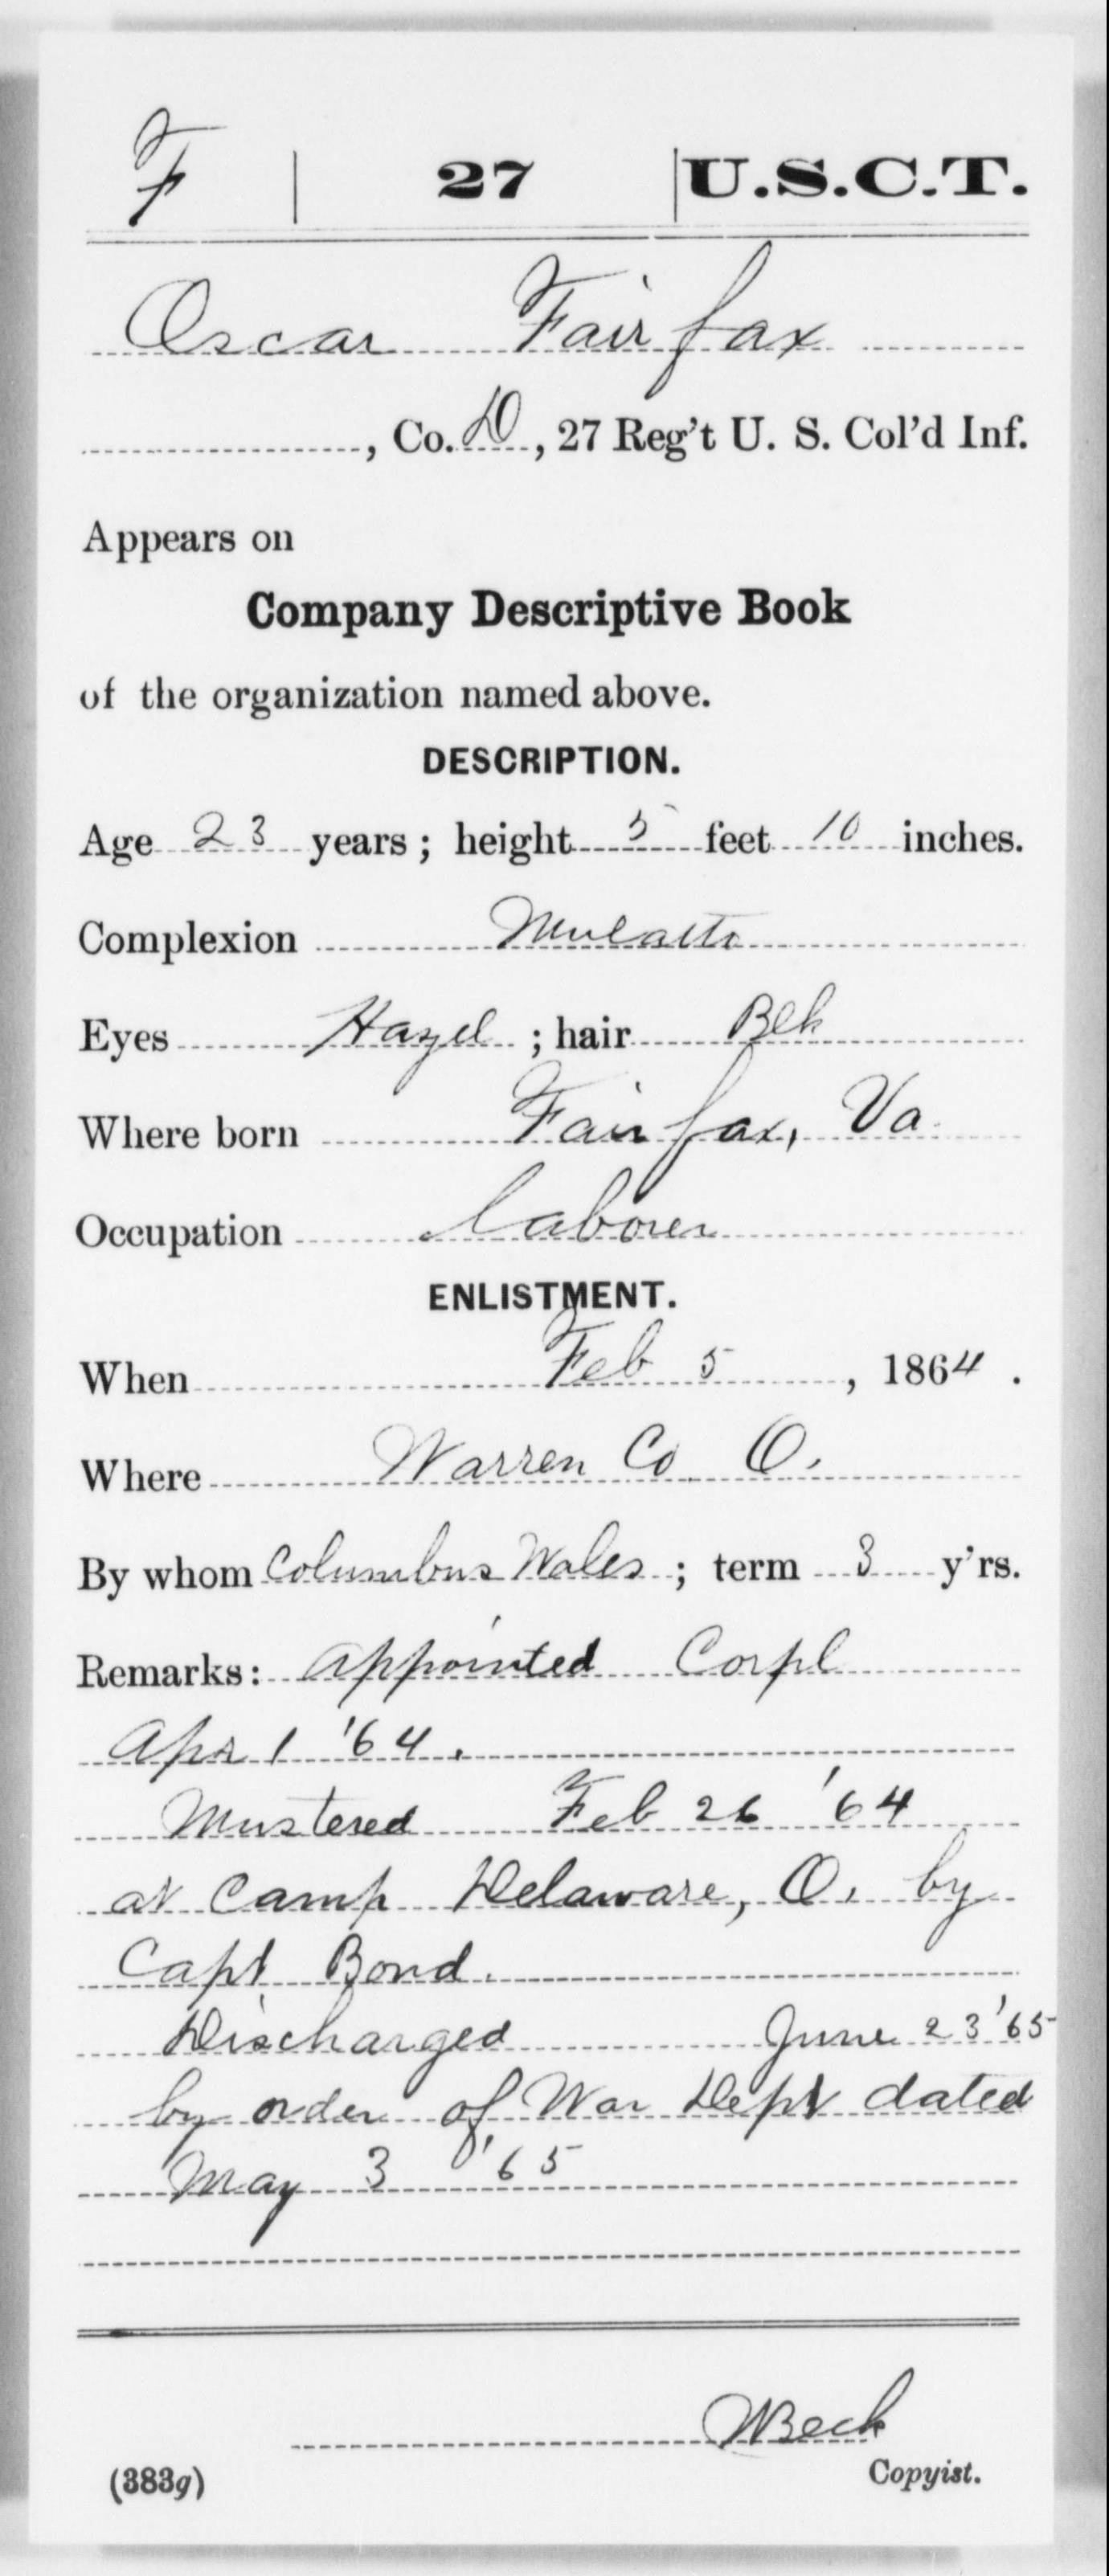 F | 27 | U.S.C.T.
Oscar Fairfax
, Co. D, 27 Reg't U. S. Col'd Inf.
Appears on
Company Descriptive Book
of the organization named above.
DESCRIPTION.
Age 23 years; height 5 feet 10 inches.
Complexion Mulatto
Eyes Hazel; hair Blk
Where born Fairfax, Va.
Occupation Laborer
ENLISTMENT.
When Feb 5, 1864.
Where Warren Co. O.
By whom Columbus Wales; term 3 y'rs.
Remarks: Appointed Corpl
Apr 1 '64.
Mustered Feb 26 '64
at Camp Delaware, O. by
Capt Bond.
Discharged June 23 '65
by order of War Dept dated
May 3 '65
WBeck
Copyist.
(383g)